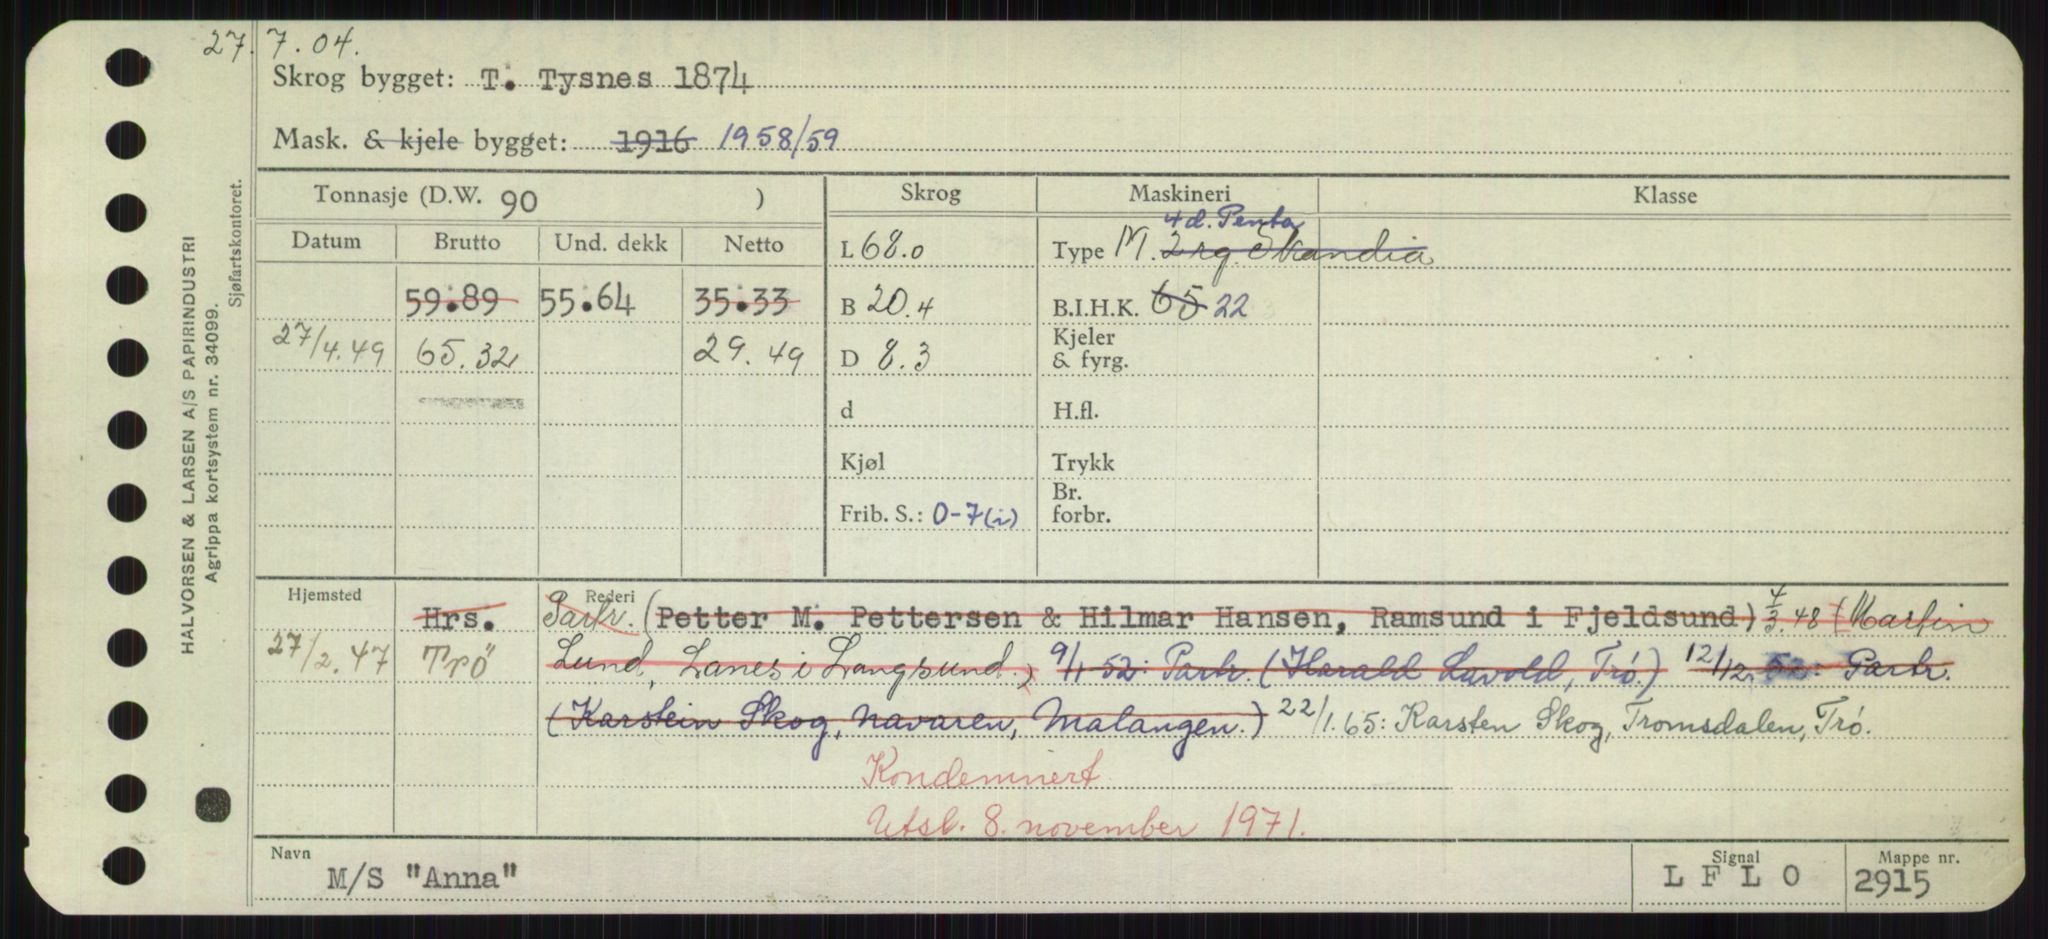 27. 7. 04.
Skrog bygget: T. Tysnes 1874
Mask. & kjele bygget: 1916 1958/59
Tonnasje (D.W. 90 )
Skrog
Maskineri
Klasse
Datum
Brutto
Und. dekk
Netto
L 68.0
4 d. Penta
Type M. 2 rg. Skandia
59.89
55.64
35.33
B 20.4
B.I.H.K. 65 22
27/4.49
65.32
29.49
D 8.3
Kjeler
& fyrg.
d
H.fl.
Kjøl
Trykk
Frib. S.: 0-7(i)
Br.
forbr.
Hjemsted
Rederi
Hrs.
Partr. (Petter M. Pettersen & Hilmar Hansen, Ramsund i Fjeldsund) 4/3.48 (Martin
27/2.47
Trö
Lund, Lanes i Langsund.) 9/1 52: Partr. (Harald Lavold, Trö.) 12/12.52: Partr.
(Karstein Skog, Navaren, Malangen.) 22/1.65: Karsten Skog, Tromsdalen, Trö.
Kondemnert
Utsl. 8. november 1971.
Navn
M/S "Anna"
Signal
L F L O
Mappe nr.
2915
HALVORSEN & LARSEN A/S PAPIRINDUSTRI
Agrippa kortsystem nr. 34099.
Sjøfartskontoret.